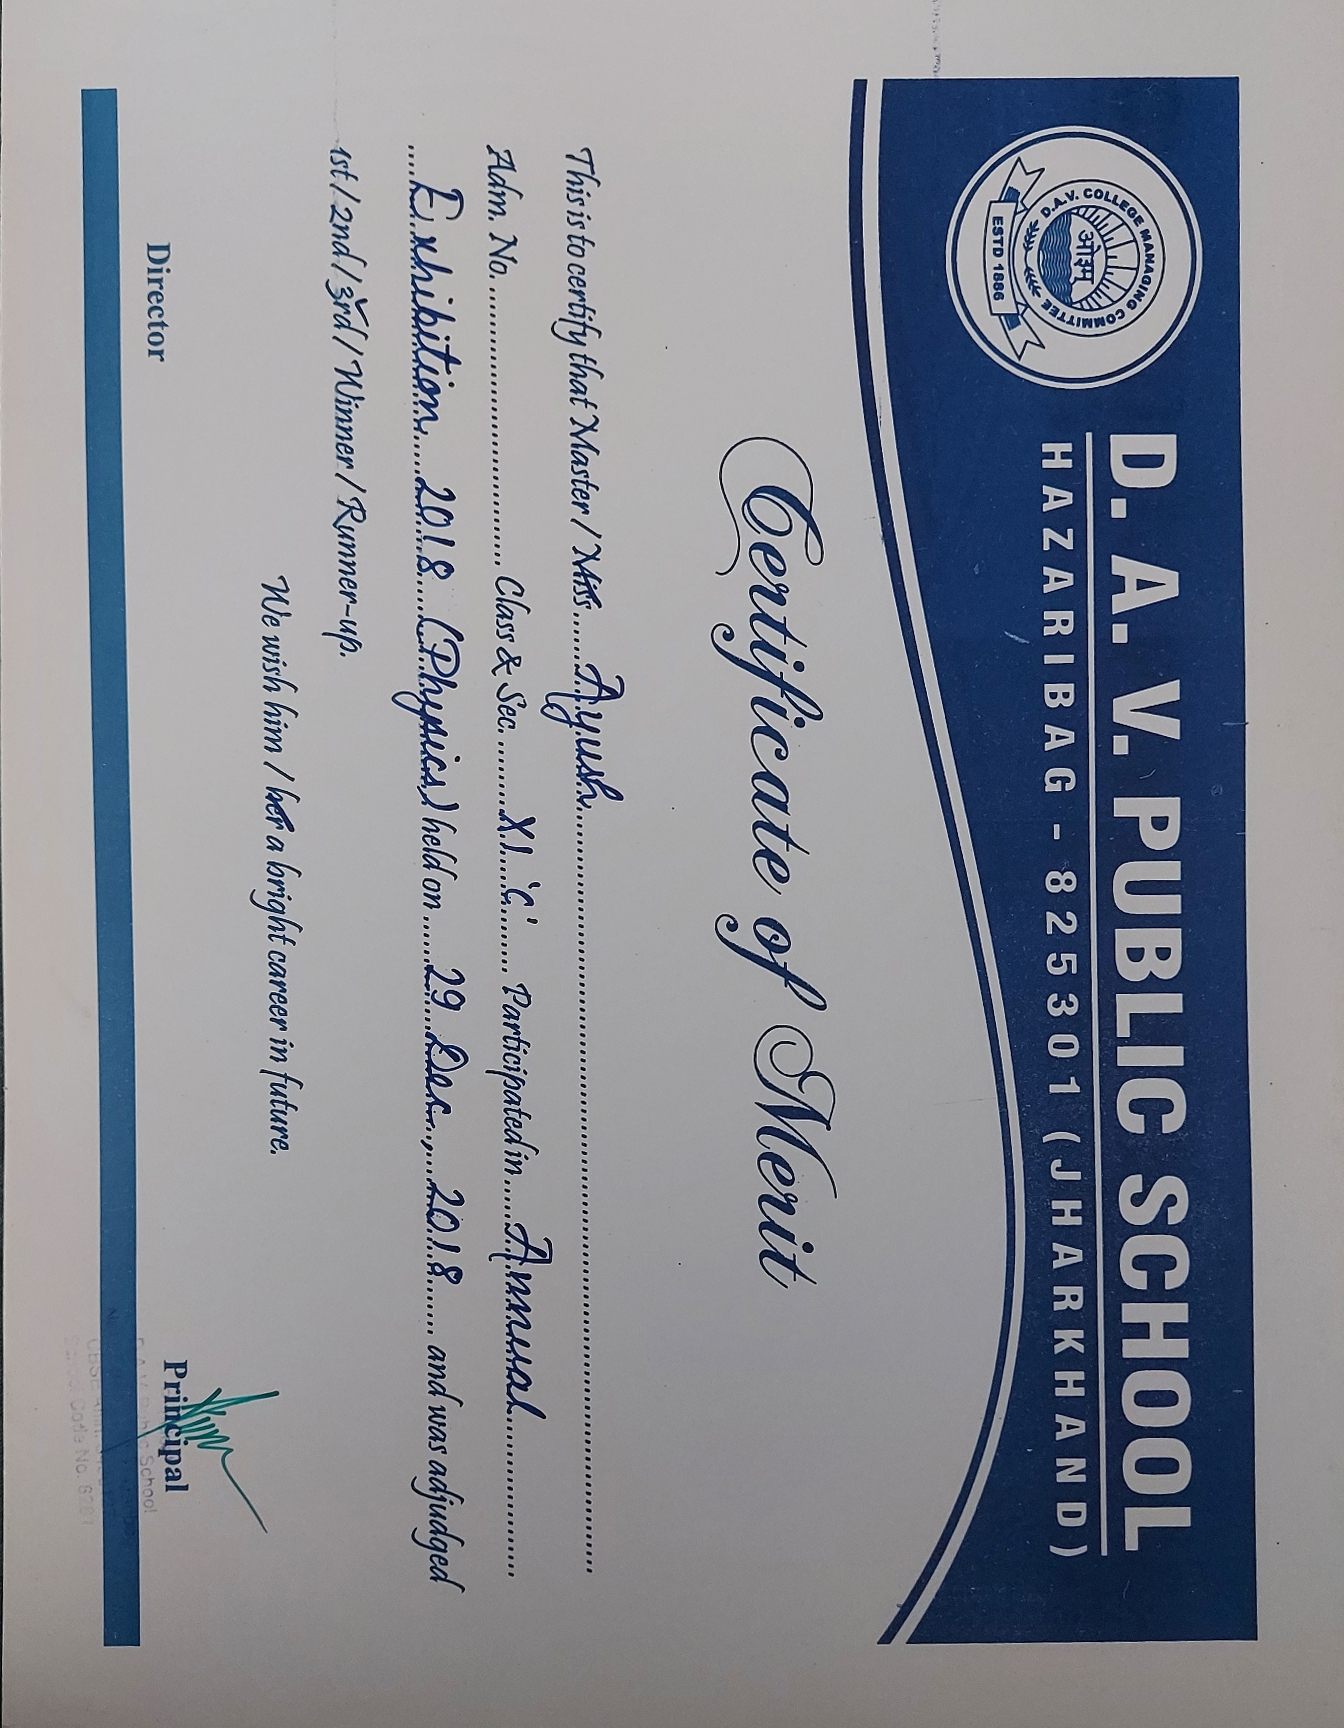 D.A.V. COLLEGE MANAGING COMMITTEE
ओ३म्
ESTD 1886
D. A. V. PUBLIC SCHOOL
HAZARIBAG - 825301 (JHARKHAND)
Certificate of Merit
This is to certify that Master / Miss ...... Ayush ......
Adm. No. ...... Class & Sec. ...... XI 'C' ...... Participated in ...... Annual ......
...... Exhibition 2018 (Physics) held on ...... 29 Dec., 2018 ...... and was adjudged
1st / 2nd / 3rd / Winner / Runner-up.
We wish him / her a bright career in future.
Director
Principal
D.A.V. Public School
CBSE
School Code No.